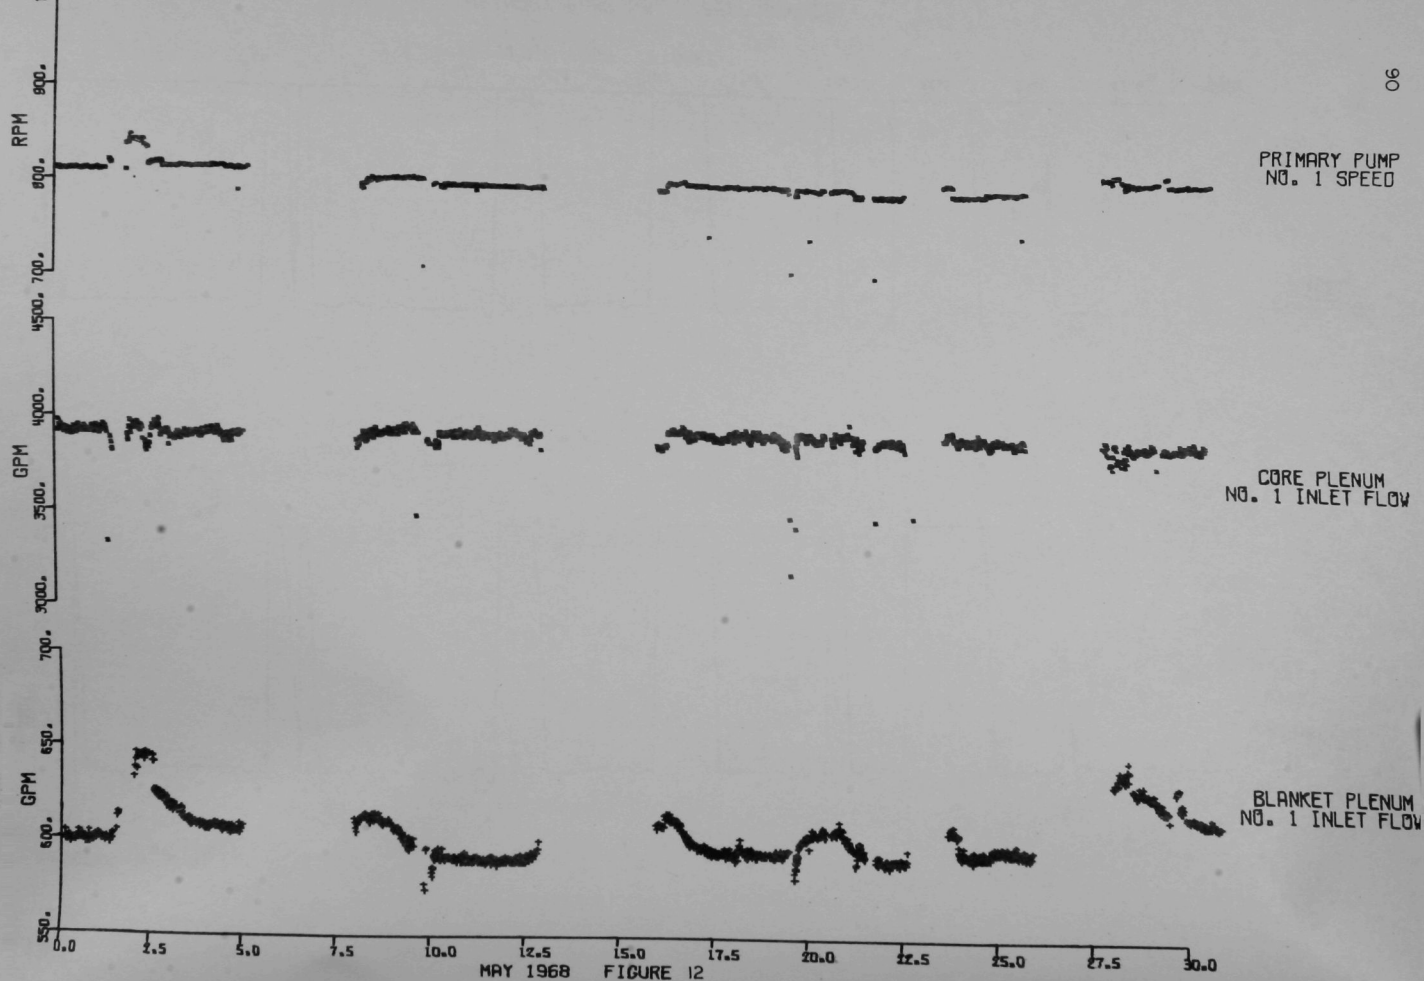 90
RPM
900.
800.
700.
PRIMARY PUMP
NO. 1 SPEED
GPM
4500.
4000.
3500.
3000.
CORE PLENUM
NO. 1 INLET FLOW
GPM
700.
650.
600.
550.
BLANKET PLENUM
NO. 1 INLET FLOW
0.0 2.5 5.0 7.5 10.0 12.5 15.0 17.5 20.0 22.5 25.0 27.5 30.0
MAY 1968 FIGURE 12